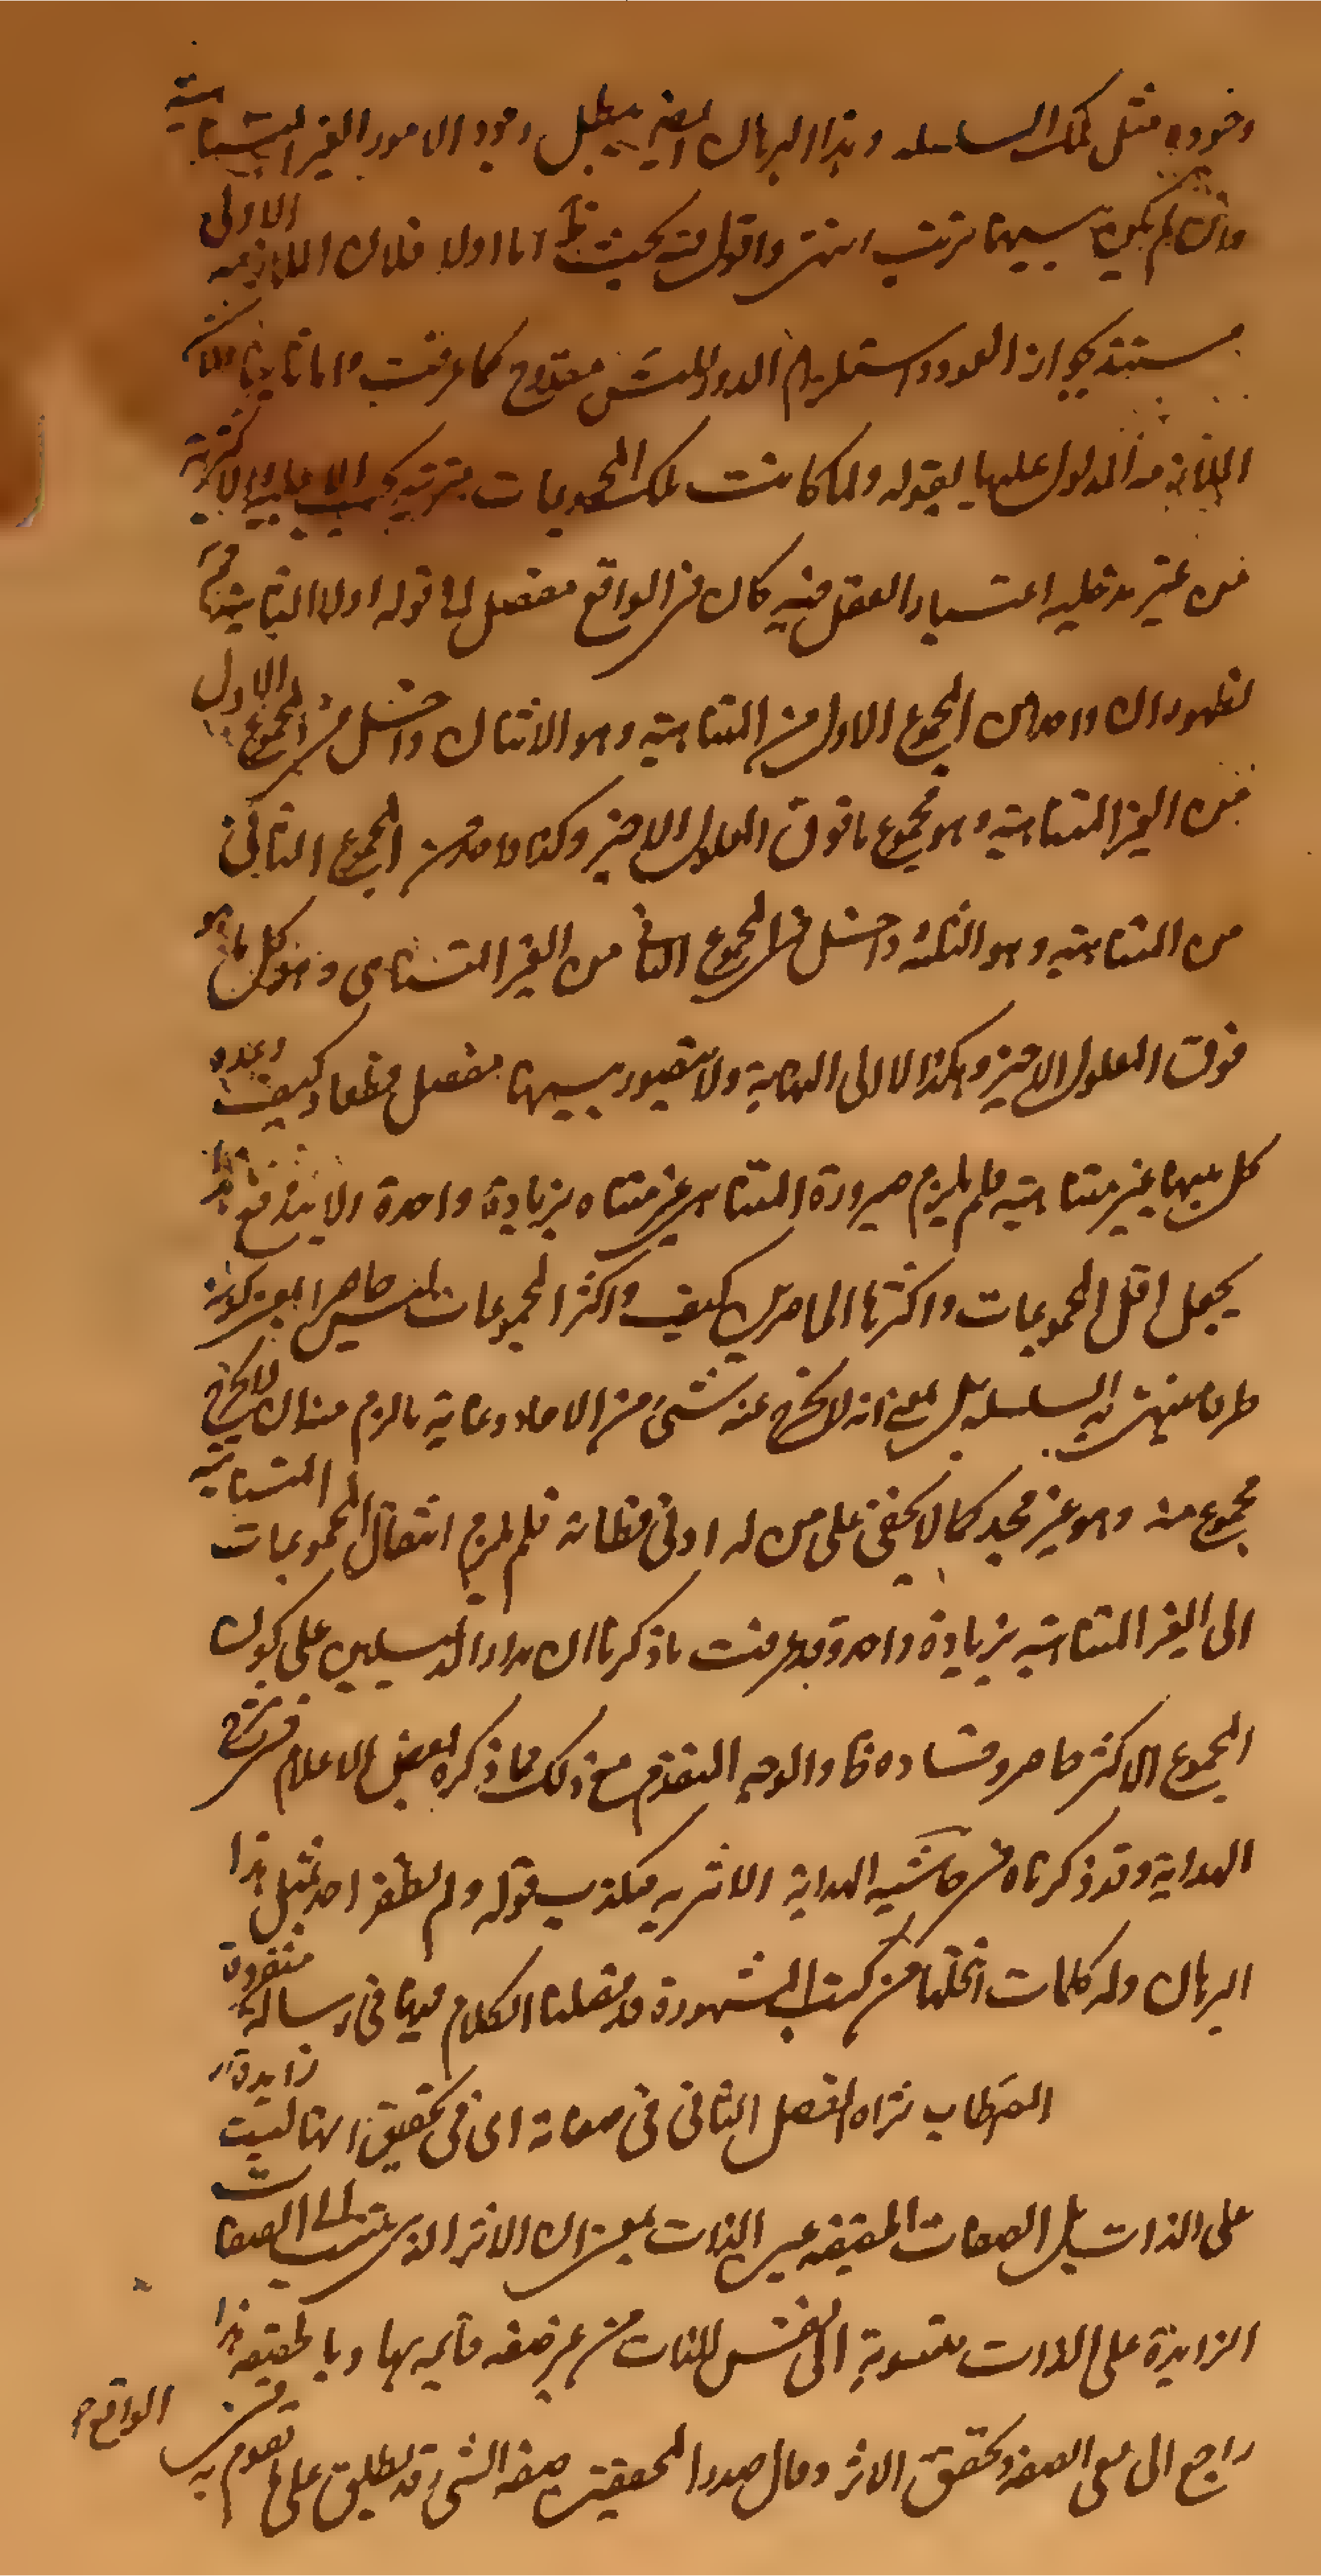 وجود مثل تلك السلسلة وهذا البرهان ايضا يبطل وجود الامور الغير المتناهية
وان لم يكن بينها ترتب انتهى واقول فيه بحث اما اولا فلان اللازمية الاولى
مستند بجواز العود واستلزام الدور للتس مقدوح كما عرفت واما ثانيا فلان
الثانية المدلول عليها بقوله ولما كانت تلك المجموعات مترتبة بحسب الاقلية والاكثرية
من غير مدخلية اعتبار العقل فيه كان في الواقع مفصل لها قوله اولا الثانية
لظهور ان واحدا من المجموع الاول من المتناهية وهو الاثنان داخل في المجموع الاول
من الغير المتناهية وهو مجموع ما فوق المعلول الاخير وكذا واحد من المجموع الثاني
من المتناهية وهو الثلثة داخل في المجموع الثاني من الغير المتناهى وهو كل ما هو
فوق المعلول الاخير وهكذا لا الى النهاية ولا يتصور بينها مفصل قطعا وكيف وعدد
كل منها غير متناهية فلم يلزم صيرورة المتناهى غير متناه بزيادة واحدة ولا يندفع هذا
بجعل اقل المجموعات واكثرها الحاصرين كيف واكثر المجموعات ليس حاصرا بمعنى كونه
طرفا ينتهى به السلسلة بل بمعنى انه لا يخرج عنه شئ من الاحاد وغاية ما لزم منه ان لا يخرج
مجموع منه وهو غير مجد كما لا يخفى على من له ادنى فطانة فلم يلزم انتقال المجموعات المتناهية
الى الغير المتناهية بزيادة واحد وقد عرفت ما ذكرنا ان مدار الدليلين على كون
المجموع الاكثر حاصر وفساده فا والوجه المتقدم مع ذلك مما ذكره بعض الاعلام في شرح
الهداية وقد ذكرناه في حاشية الهداية الاثرية فكذب قوله ولم يظفر احد بمثل هذا
البرهان وله كلمات انتحلها من كتب المشهورة قد فصلنا الكلام فيها في رسالة منفردة
الفصل الثاني في صفاته اى في تحقيق انها ليست زايدة
على الذات بل الصفات الحقيقة عين الذات بمعنى ان الاثر الذى يترتب على الصفات
الزايدة على الذات منسوبة الى نفس الذات من غير صفة قائمة بها وبالحقيقة هذا
راجع الى نفى الصفة وتحقق الاثر وقال صدر المحققين صفة الشئ قد يطلق على ما يقوم به في الواقع